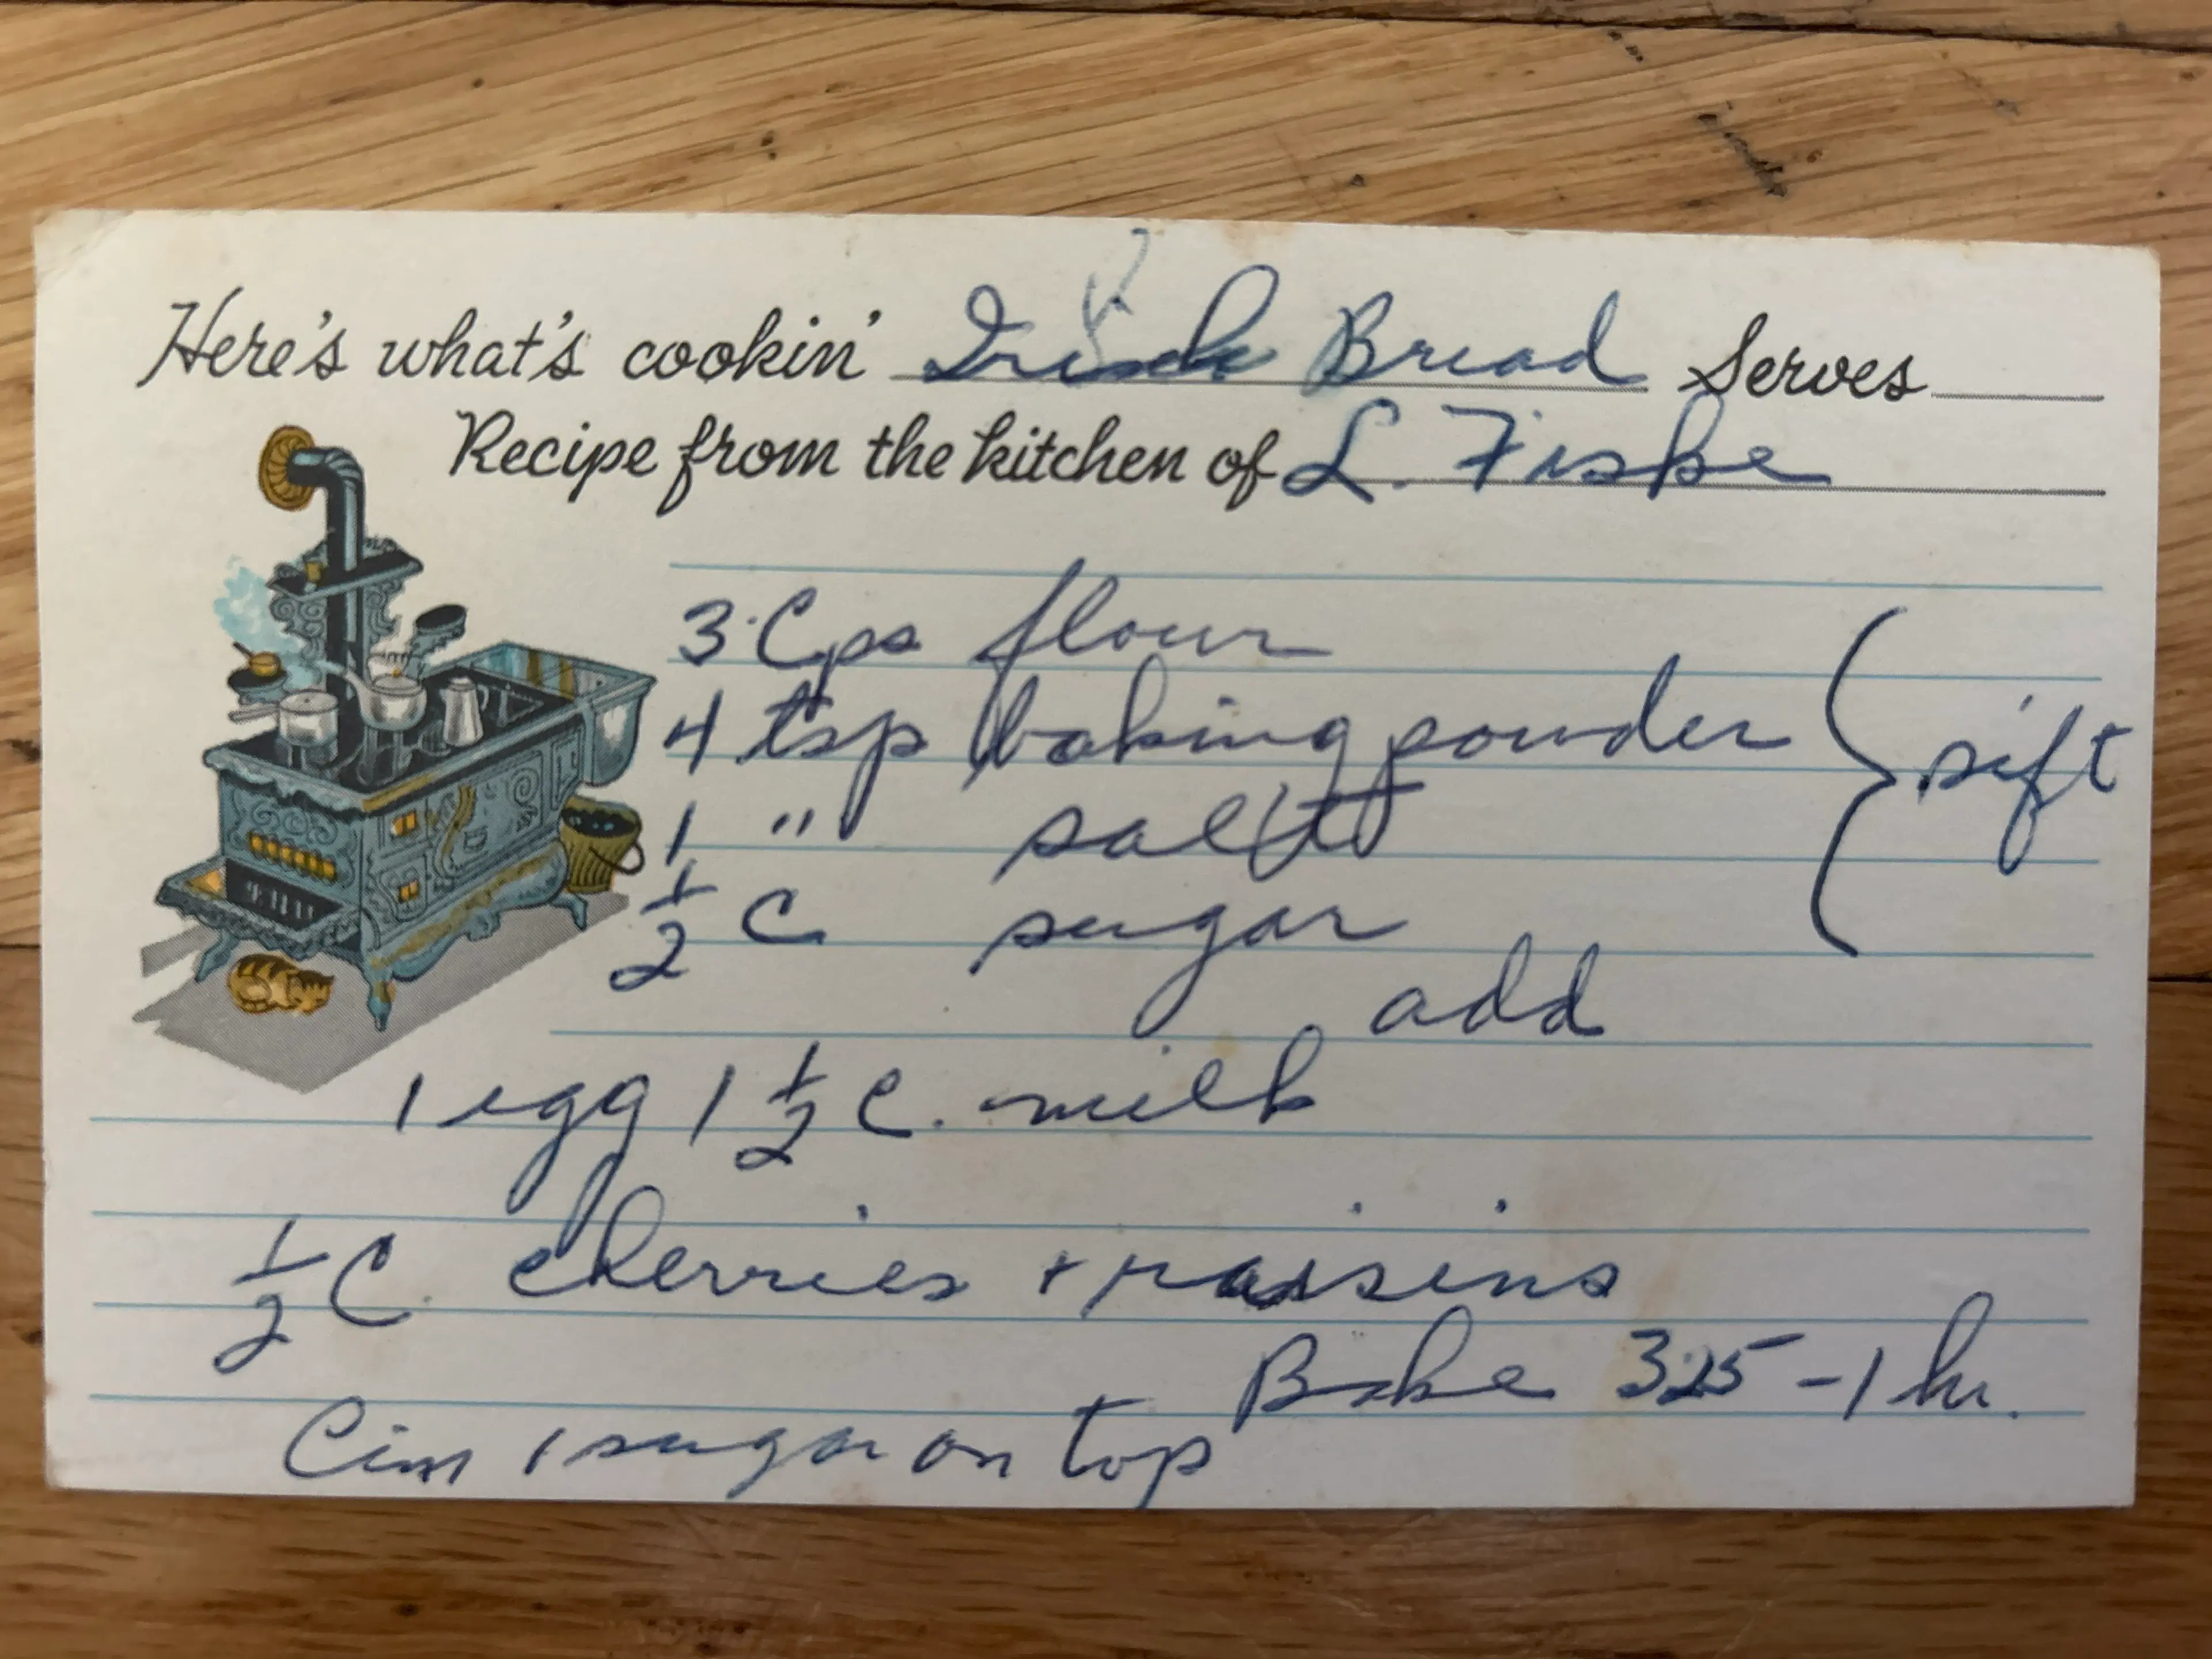 Here's what's cookin' Irish Bread Serves
Recipe from the kitchen of L. Fiske
3 Cps flour
4 tsp baking powder } sift
1 " salt
1/2 C sugar
add
1 egg 1 1/2 C. milk
1/2 C. cherries + raisins
Bake 325 - 1 hr.
Cim / sugar on top